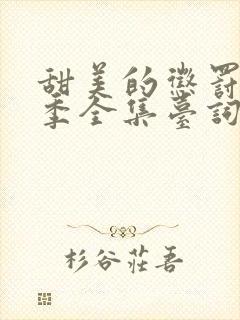 甜美的懲罰
季全集臺詞
杉谷莊吾